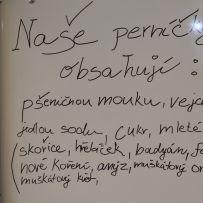 Naše pernič
obsahují:
pšeničnou mouku, vejc
jedlou sodu, cukr, mleté
(skořice, hřebíček, badyán, fe
nové koření, anýz, muškátový oř
muškátový květ,